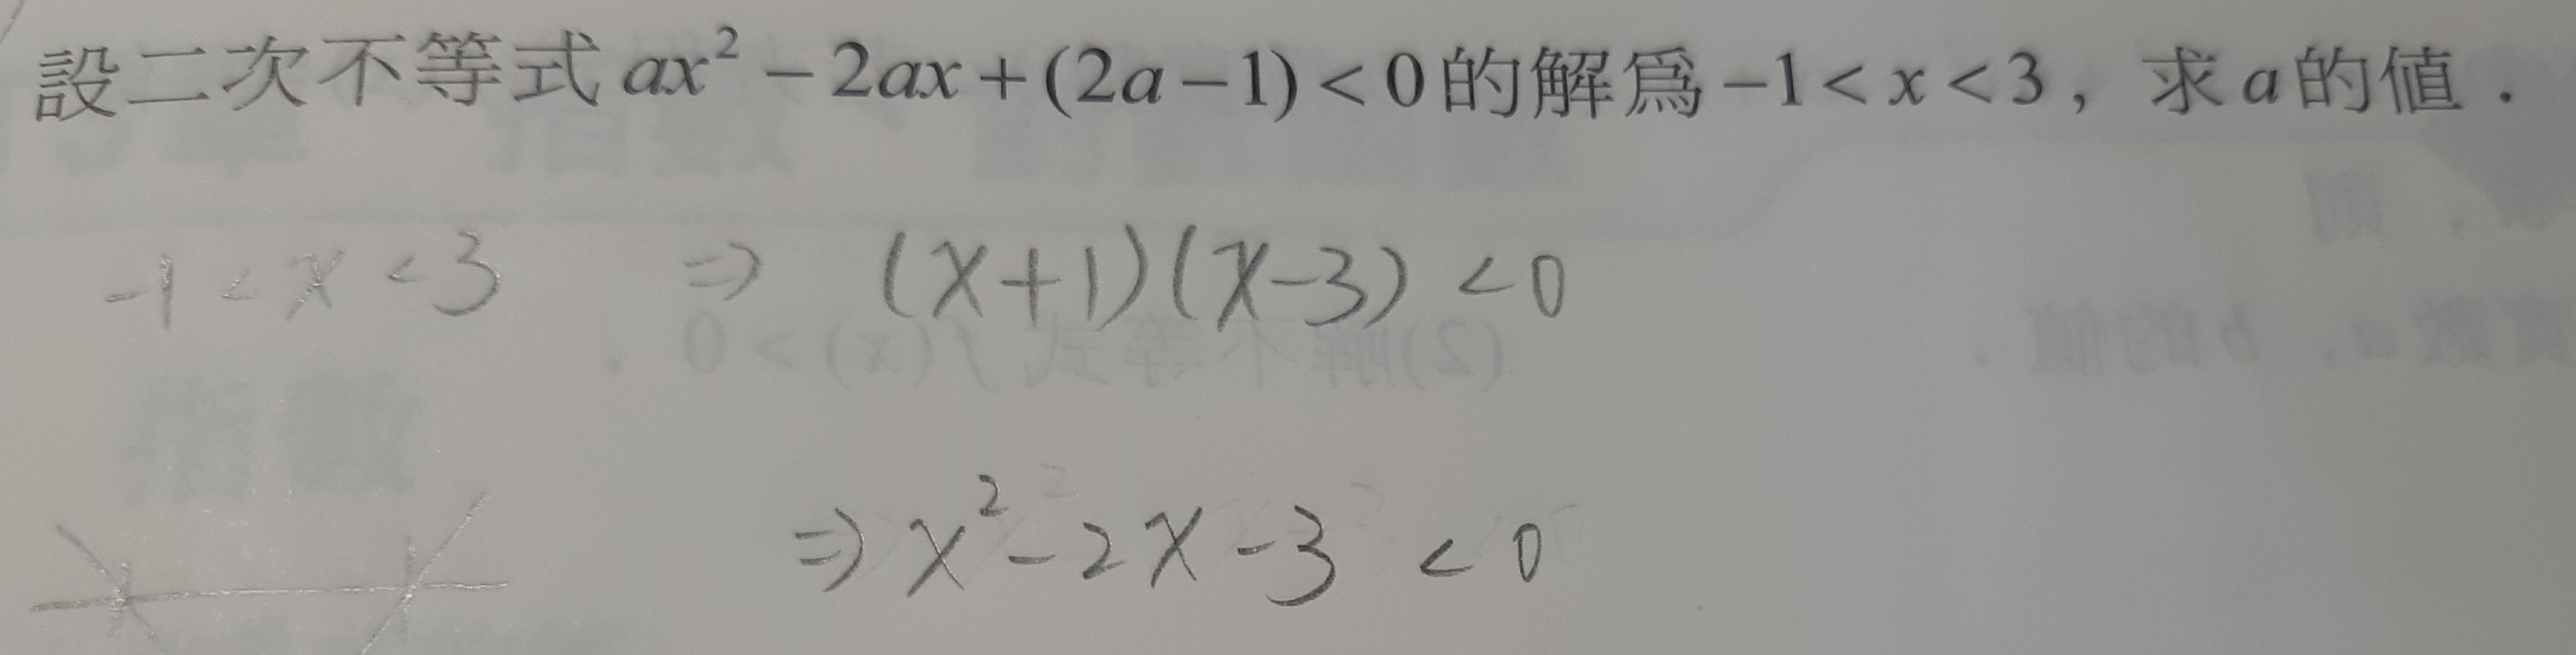 設二次不等式 ax² − 2ax + (2a − 1) < 0 的解為 −1 < x < 3，求 a 的值．
-1 < x < 3 ⇒ (x+1)(x-3) < 0
(2)解不等式 f(x) > 0．
⇒ x² - 2x - 3 < 0